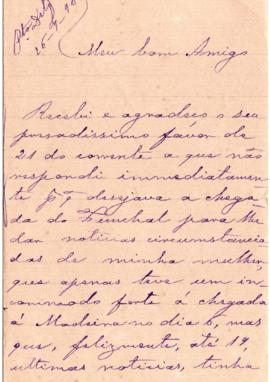 26-9-90
Meu bom Amigo
Recebi e agradeço o seu
presadissimo favôr de
21 do corrente a que não
respondi immediatamen
te pq desejava a chega
da do Funchal para lhe
dar noticias circumstancia
das de minha mulher,
que apenas teve um in
commodo forte á chegada
á Madeira no dia 6, mas
que, felizmente, até 19,
ultimas noticias, tinha